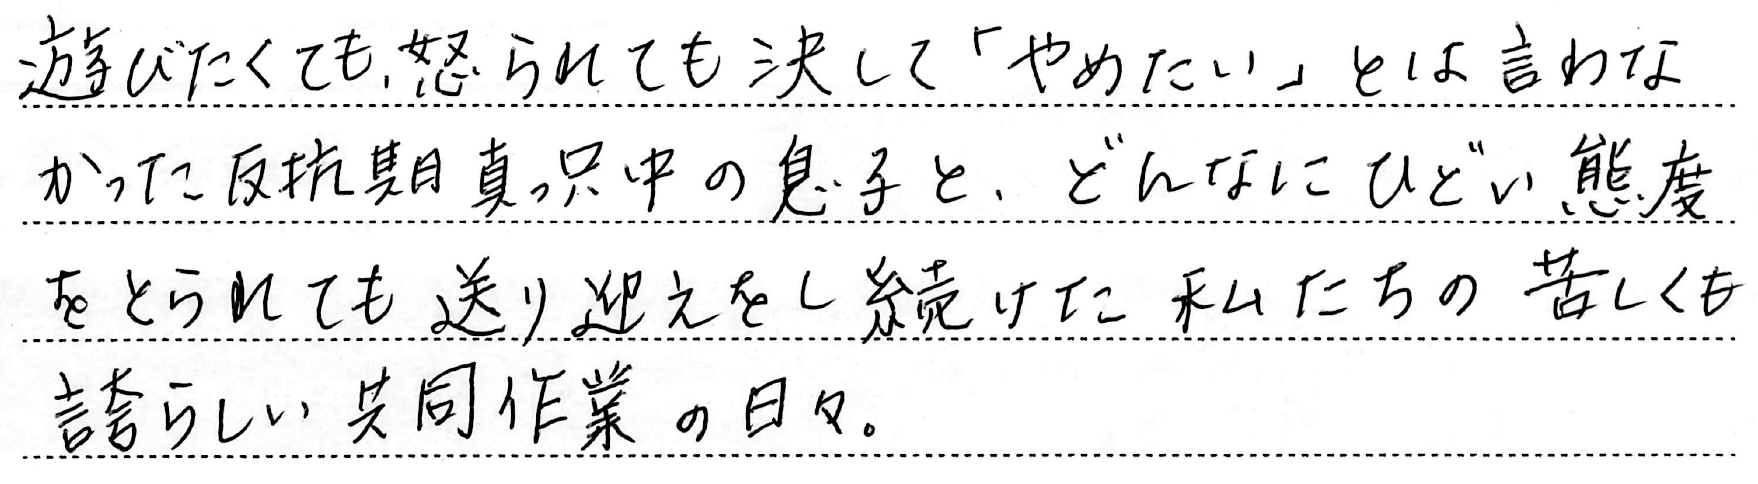 遊びたくても、怒られても決して「やめたい」とは言わな
かった反抗期真っ只中の息子と、どんなにひどい態度
をとられても送り迎えをし続けた私たちの苦しくも
誇らしい共同作業の日々。